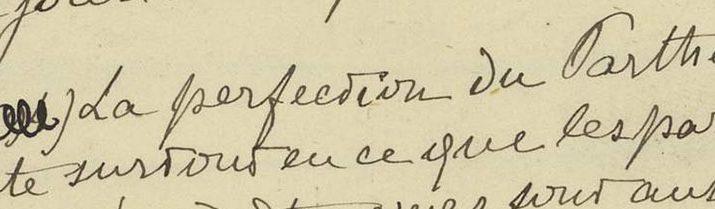 ) La perfection du Parth
te surtout en ce que les par
sont aus